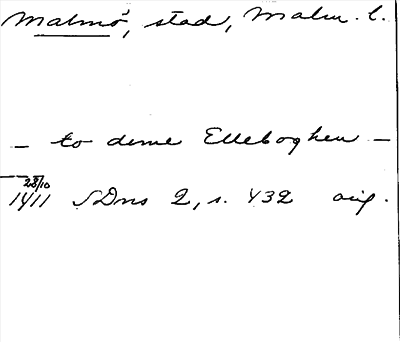 Malmö, stad, Malm. l.
– to deme Elleboghen –
28/10
1411 SDns 2, s. 432 orig.